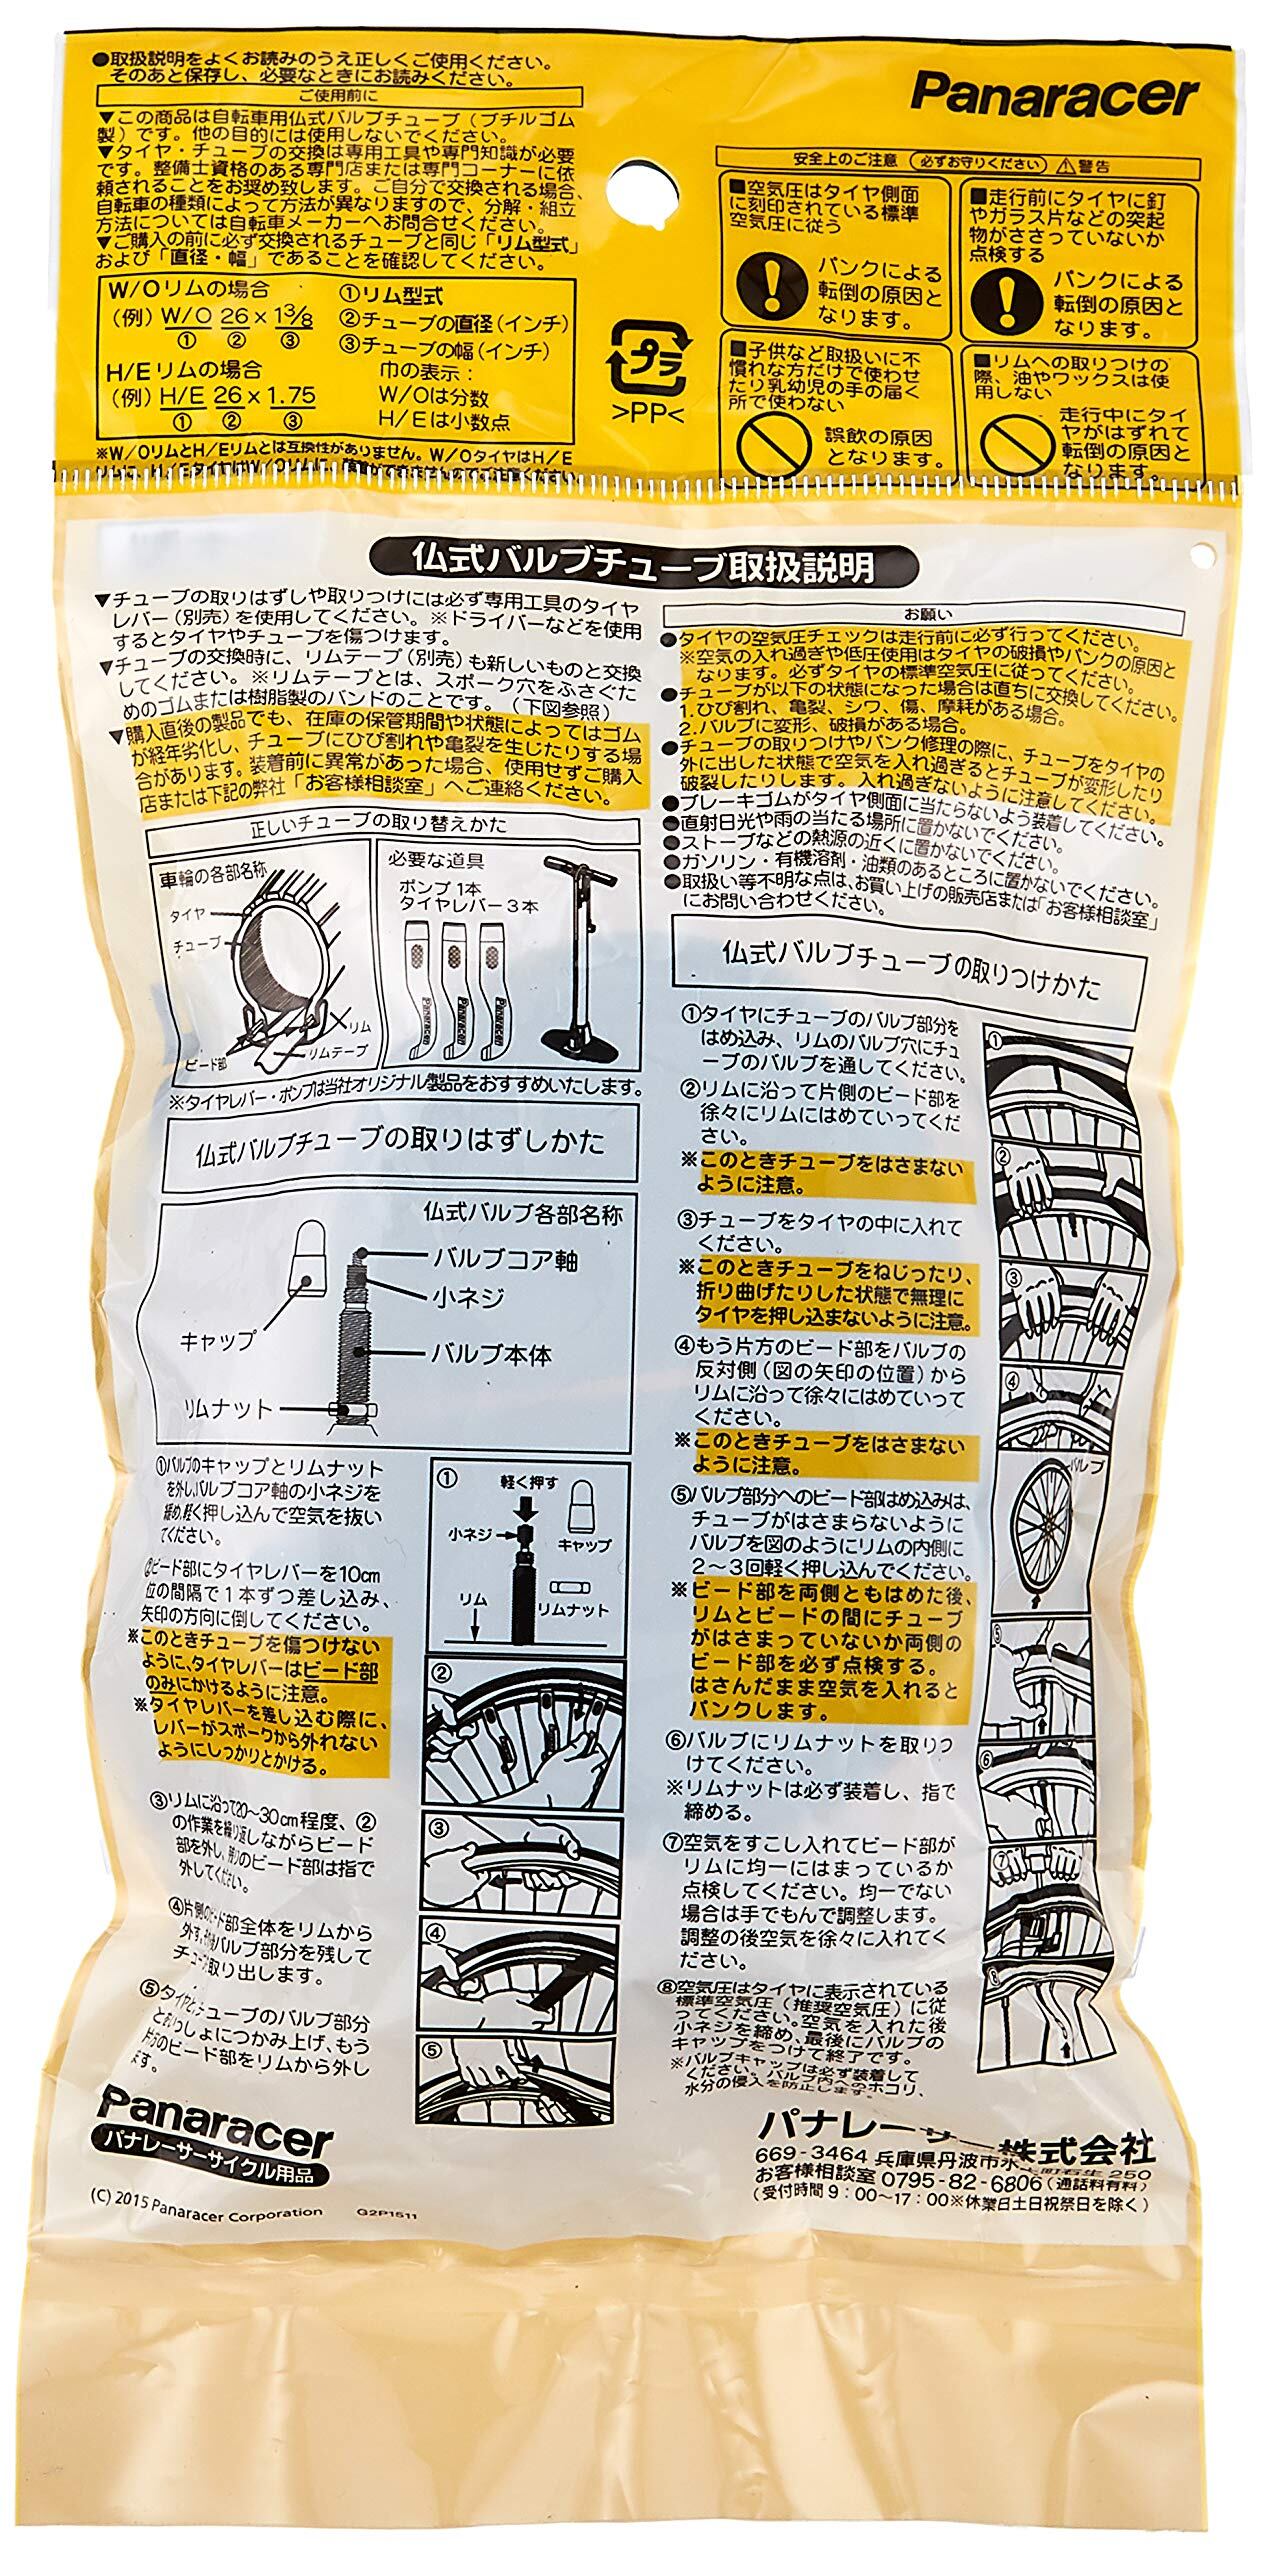 ●取扱説明をよくお読みのうえ正しくご使用ください。
そのあと保存し、必要なときにお読みください。
ご使用前に
▼この商品は自転車用仏式バルブチューブ（ブチルゴム
製）です。他の目的には使用しないでください。
▼タイヤ・チューブの交換は専用工具や専門知識が必要
です。整備士資格のある専門店または専門コーナーに依
頼されることをお奨め致します。ご自分で交換される場合、
自転車の種類によって方法が異なりますので、分解・組立
方法については自転車メーカーへお問合せください。
▼ご購入の前に必ず交換されるチューブと同じ「リム型式」
および「直径・幅」であることを確認してください。
W/Oリムの場合
(例) W/O 26×1 3/8
① ② ③
H/Eリムの場合
(例) H/E 26×1.75
① ② ③
①リム型式
②チューブの直径(インチ)
③チューブの幅(インチ)
巾の表示：
W/Oは分数
H/Eは小数点
※W/OリムとH/Eリムとは互換性がありません。W/OタイヤはH/E
Panaracer
安全上のご注意 (必ずお守りください) ⚠警告
■空気圧はタイヤ側面
に刻印されている標準
空気圧に従う
パンクによる
転倒の原因と
なります。
■走行前にタイヤに釘
やガラス片などの突起
物がささっていないか
点検する
パンクによる
転倒の原因と
なります。
■子供など取扱いに不
慣れな方だけで使わせ
たり乳幼児の手の届く
所で使わない
誤飲の原因
となります。
■リムへの取りつけの
際、油やワックスは使
用しない
走行中にタイ
ヤがはずれて
転倒の原因と
なります。
プラ
>PP<
仏式バルブチューブ取扱説明
▼チューブの取りはずしや取りつけには必ず専用工具のタイヤ
レバー（別売）を使用してください。※ドライバーなどを使用
するとタイヤやチューブを傷つけます。
▼チューブの交換時に、リムテープ（別売）も新しいものと交換
してください。※リムテープとは、スポーク穴をふさぐた
めのゴムまたは樹脂製のバンドのことです。（下図参照）
▼購入直後の製品でも、在庫の保管期間や状態によってはゴム
が経年劣化し、チューブにひび割れや亀裂を生じたりする場
合があります。装着前に異常があった場合、使用せずご購入
店または下記の弊社「お客様相談室」へご連絡ください。
正しいチューブの取り替えかた
車輪の各部名称
タイヤ
チューブ
リム
リムテープ
ビード部
必要な道具
ポンプ1本
タイヤレバー3本
Panaracer
Panaracer
Panaracer
※タイヤレバー・ポンプは当社オリジナル製品をおすすめいたします。
仏式バルブチューブの取りはずしかた
仏式バルブ各部名称
バルブコア軸
小ネジ
キャップ
バルブ本体
リムナット
①バルブのキャップとリムナット
を外し、バルブコア軸の小ネジを
緩め、軽く押し込んで空気を抜い
てください。
②ビード部にタイヤレバーを10cm
位の間隔で1本ずつ差し込み、
矢印の方向に倒してください。
※このときチューブを傷つけない
ように、タイヤレバーはビード部
のみにかけるように注意。
※タイヤレバーを差し込む際に、
レバーがスポークから外れない
ようにしっかりとかける。
③リムに沿って20〜30cm程度、②
の作業を繰り返しながらビード
部を外し、残りのビード部は指で
外してください。
④片側のビード部全体をリムから
外す。バルブ部分を残して
チューブを取り出します。
⑤タイヤとチューブのバルブ部分
といっしょにつかみ上げ、もう
片方のビード部をリムから外し
ます。
①
軽く押す
小ネジ
キャップ
リム
リムナット
②
③
④
⑤
お願い
●タイヤの空気圧チェックは走行前に必ず行ってください。
※空気の入れ過ぎや低圧使用はタイヤの破損やパンクの原因と
なります。必ずタイヤの標準空気圧に従ってください。
●チューブが以下の状態になった場合は直ちに交換してください。
1.ひび割れ、亀裂、シワ、傷、摩耗がある場合。
2.バルブに変形、破損がある場合。
●チューブの取りつけやパンク修理の際に、チューブをタイヤの
外に出した状態で空気を入れ過ぎるとチューブが変形したり
破裂したりします。入れ過ぎないように注意してください。
●ブレーキゴムがタイヤ側面に当たらないよう装着してください。
●直射日光や雨の当たる場所に置かないでください。
●ストーブなどの熱源の近くに置かないでください。
●ガソリン・有機溶剤・油類のあるところに置かないでください。
●取扱い等不明な点は、お買い上げの販売店または「お客様相談室」
にお問い合わせください。
仏式バルブチューブの取りつけかた
①タイヤにチューブのバルブ部分を
はめ込み、リムのバルブ穴にチュ
ーブのバルブを通してください。
②リムに沿って片側のビード部を
徐々にリムにはめていってくだ
さい。
※このときチューブをはさまない
ように注意。
③チューブをタイヤの中に入れて
ください。
※このときチューブをねじったり、
折り曲げたりした状態で無理に
タイヤを押し込まないように注意。
④もう片方のビード部をバルブの
反対側（図の矢印の位置）から
リムに沿って徐々にはめていって
ください。
※このときチューブをはさまない
ように注意。
⑤バルブ部分へのビード部はめ込みは、
チューブがはさまらないように
バルブを図のようにリムの内側に
2〜3回軽く押し込んでください。
※ビード部を両側ともはめた後、
リムとビードの間にチューブ
がはさまっていないか両側の
ビード部を必ず点検する。
はさんだまま空気を入れると
パンクします。
⑥バルブにリムナットを取りつ
けてください。
※リムナットは必ず装着し、指で
締める。
⑦空気をすこし入れてビード部が
リムに均一にはまっているか
点検してください。均一でない
場合は手でもんで調整します。
調整の後空気を徐々に入れてく
ださい。
⑧空気圧はタイヤに表示されている
標準空気圧（推奨空気圧）に従
ってください。空気を入れた後
小ネジを締め、最後にバルブの
キャップをつけて終了です。
※バルブキャップは必ず装着して
ください。バルブ内へのホコリ、
水分の侵入を防止します。
①
②
③
④
バルブ
⑤
⑥
⑦
⑧
Panaracer
パナレーサーサイクル用品
(C) 2015 Panaracer Corporation G2P1511
パナレーサー株式会社
669-3464 兵庫県丹波市氷上町石生 250
お客様相談室 0795-82-6806（通話料有料）
（受付時間 9：00〜17：00※休業日土日祝祭日を除く）